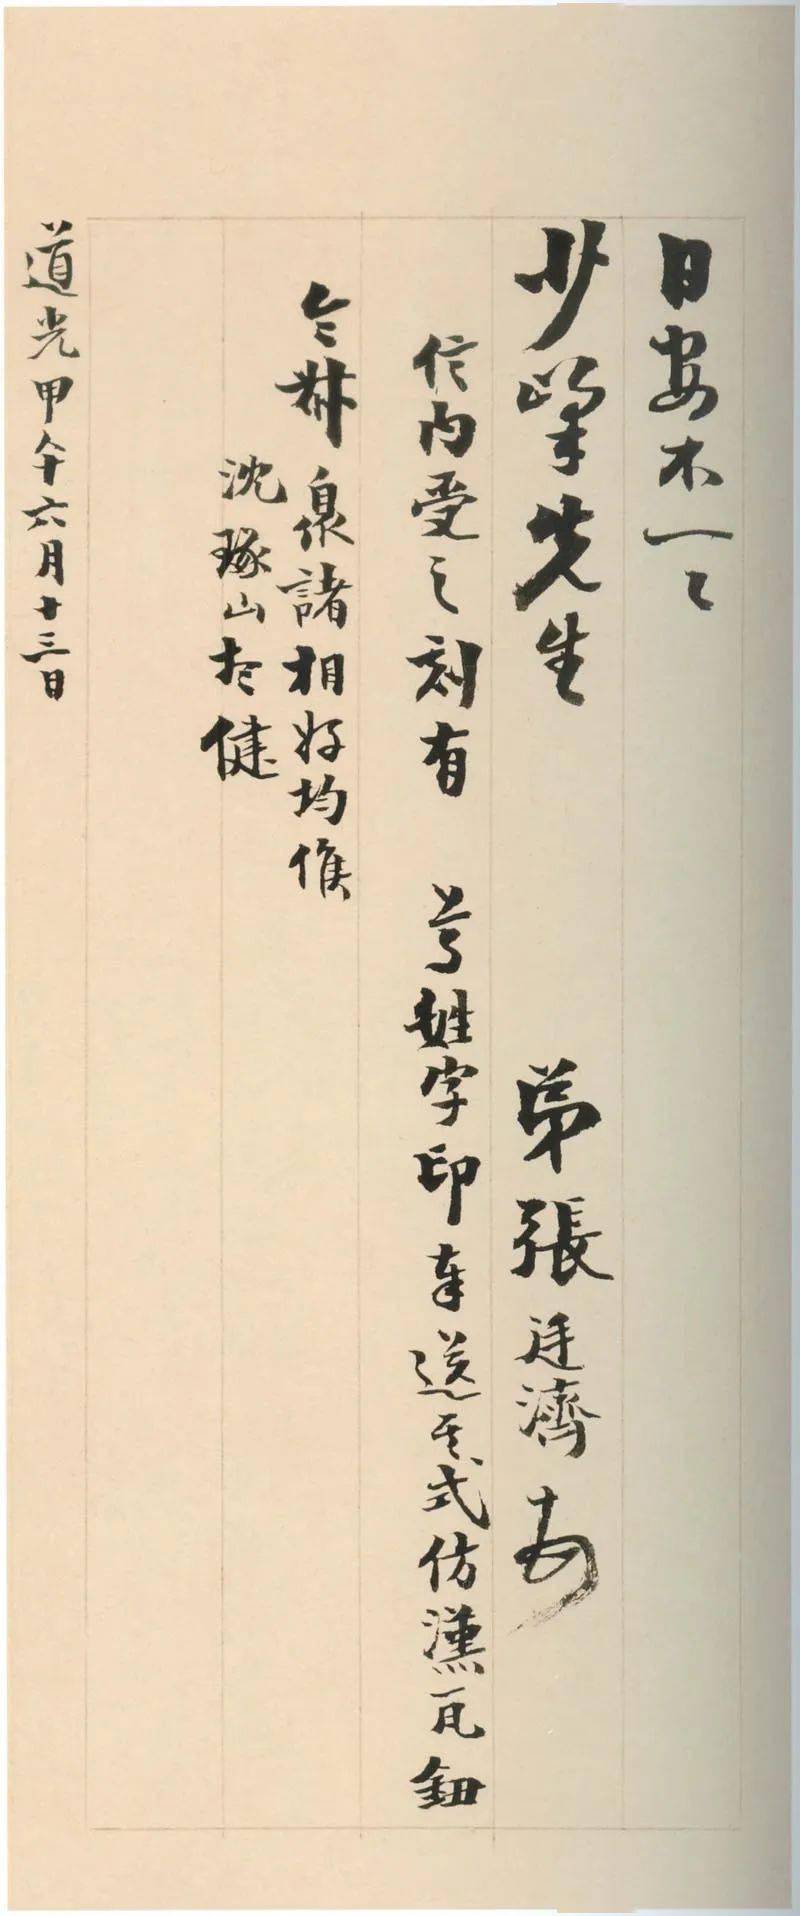 日安不一々
少峰先生 弟張廷濟
信內受之刻有 芳姓字印奉送其式仿漢瓦鈕
令 泉諸相好均候
沈琢山 健
道光甲午六月十三日